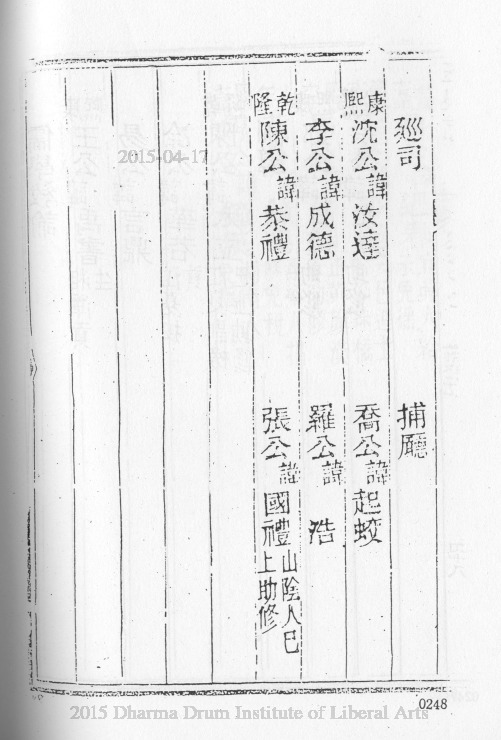 廵司
捕廳
康熙
沈公諱汝達
喬公諱起蛟
李公諱成德
羅公諱浩
乾隆
陳公諱恭禮
張公諱國禮山陰人巳上助修
2015-04-17
0248
2015 Dharma Drum Institute of Liberal Arts